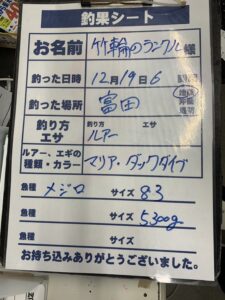 釣果シート
お名前 竹輪のランクル 様
釣った日時 12月19日6
釣った場所 富田
釣り方 エサ 釣り方 ルアー エサ
ルアー、エギの種類・カラー マリア・ダックダイブ
魚種 メジロ サイズ 83
魚種 サイズ 5300g
魚種 サイズ
お持ち込みありがとうございました。